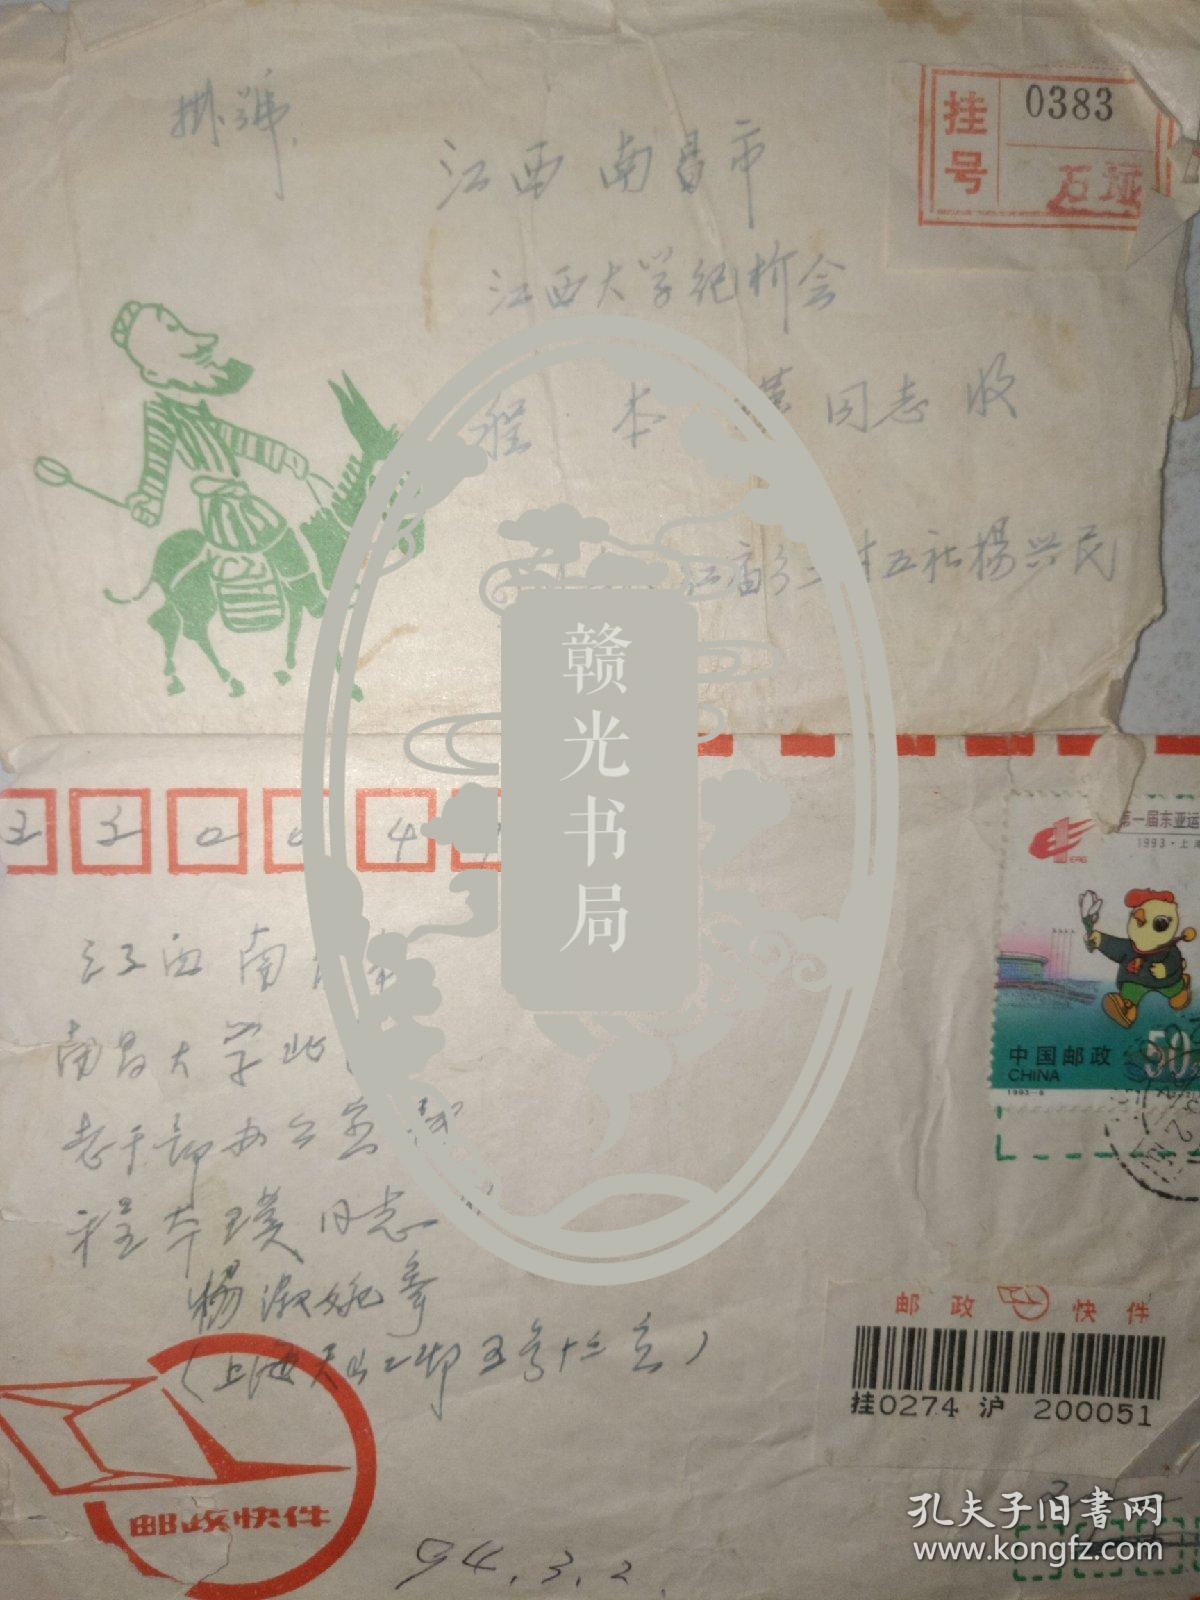 掛號
挂号
0383
江西南昌市
江西大学纪
程本 同志收
五社楊兴民
赣光书局
3 3 0 0 4
第一届东亚运
1993·上海
EAG
中国邮政
CHINA
50
1993-6
江西南
南昌大学北
老干部办公室
程本璞同志
楊淑婉
(上海天山二邨五号十三室)
邮政快件
挂0274 沪 200051
邮政快件
94.3.2.
孔夫子旧书网
www.kongfz.com